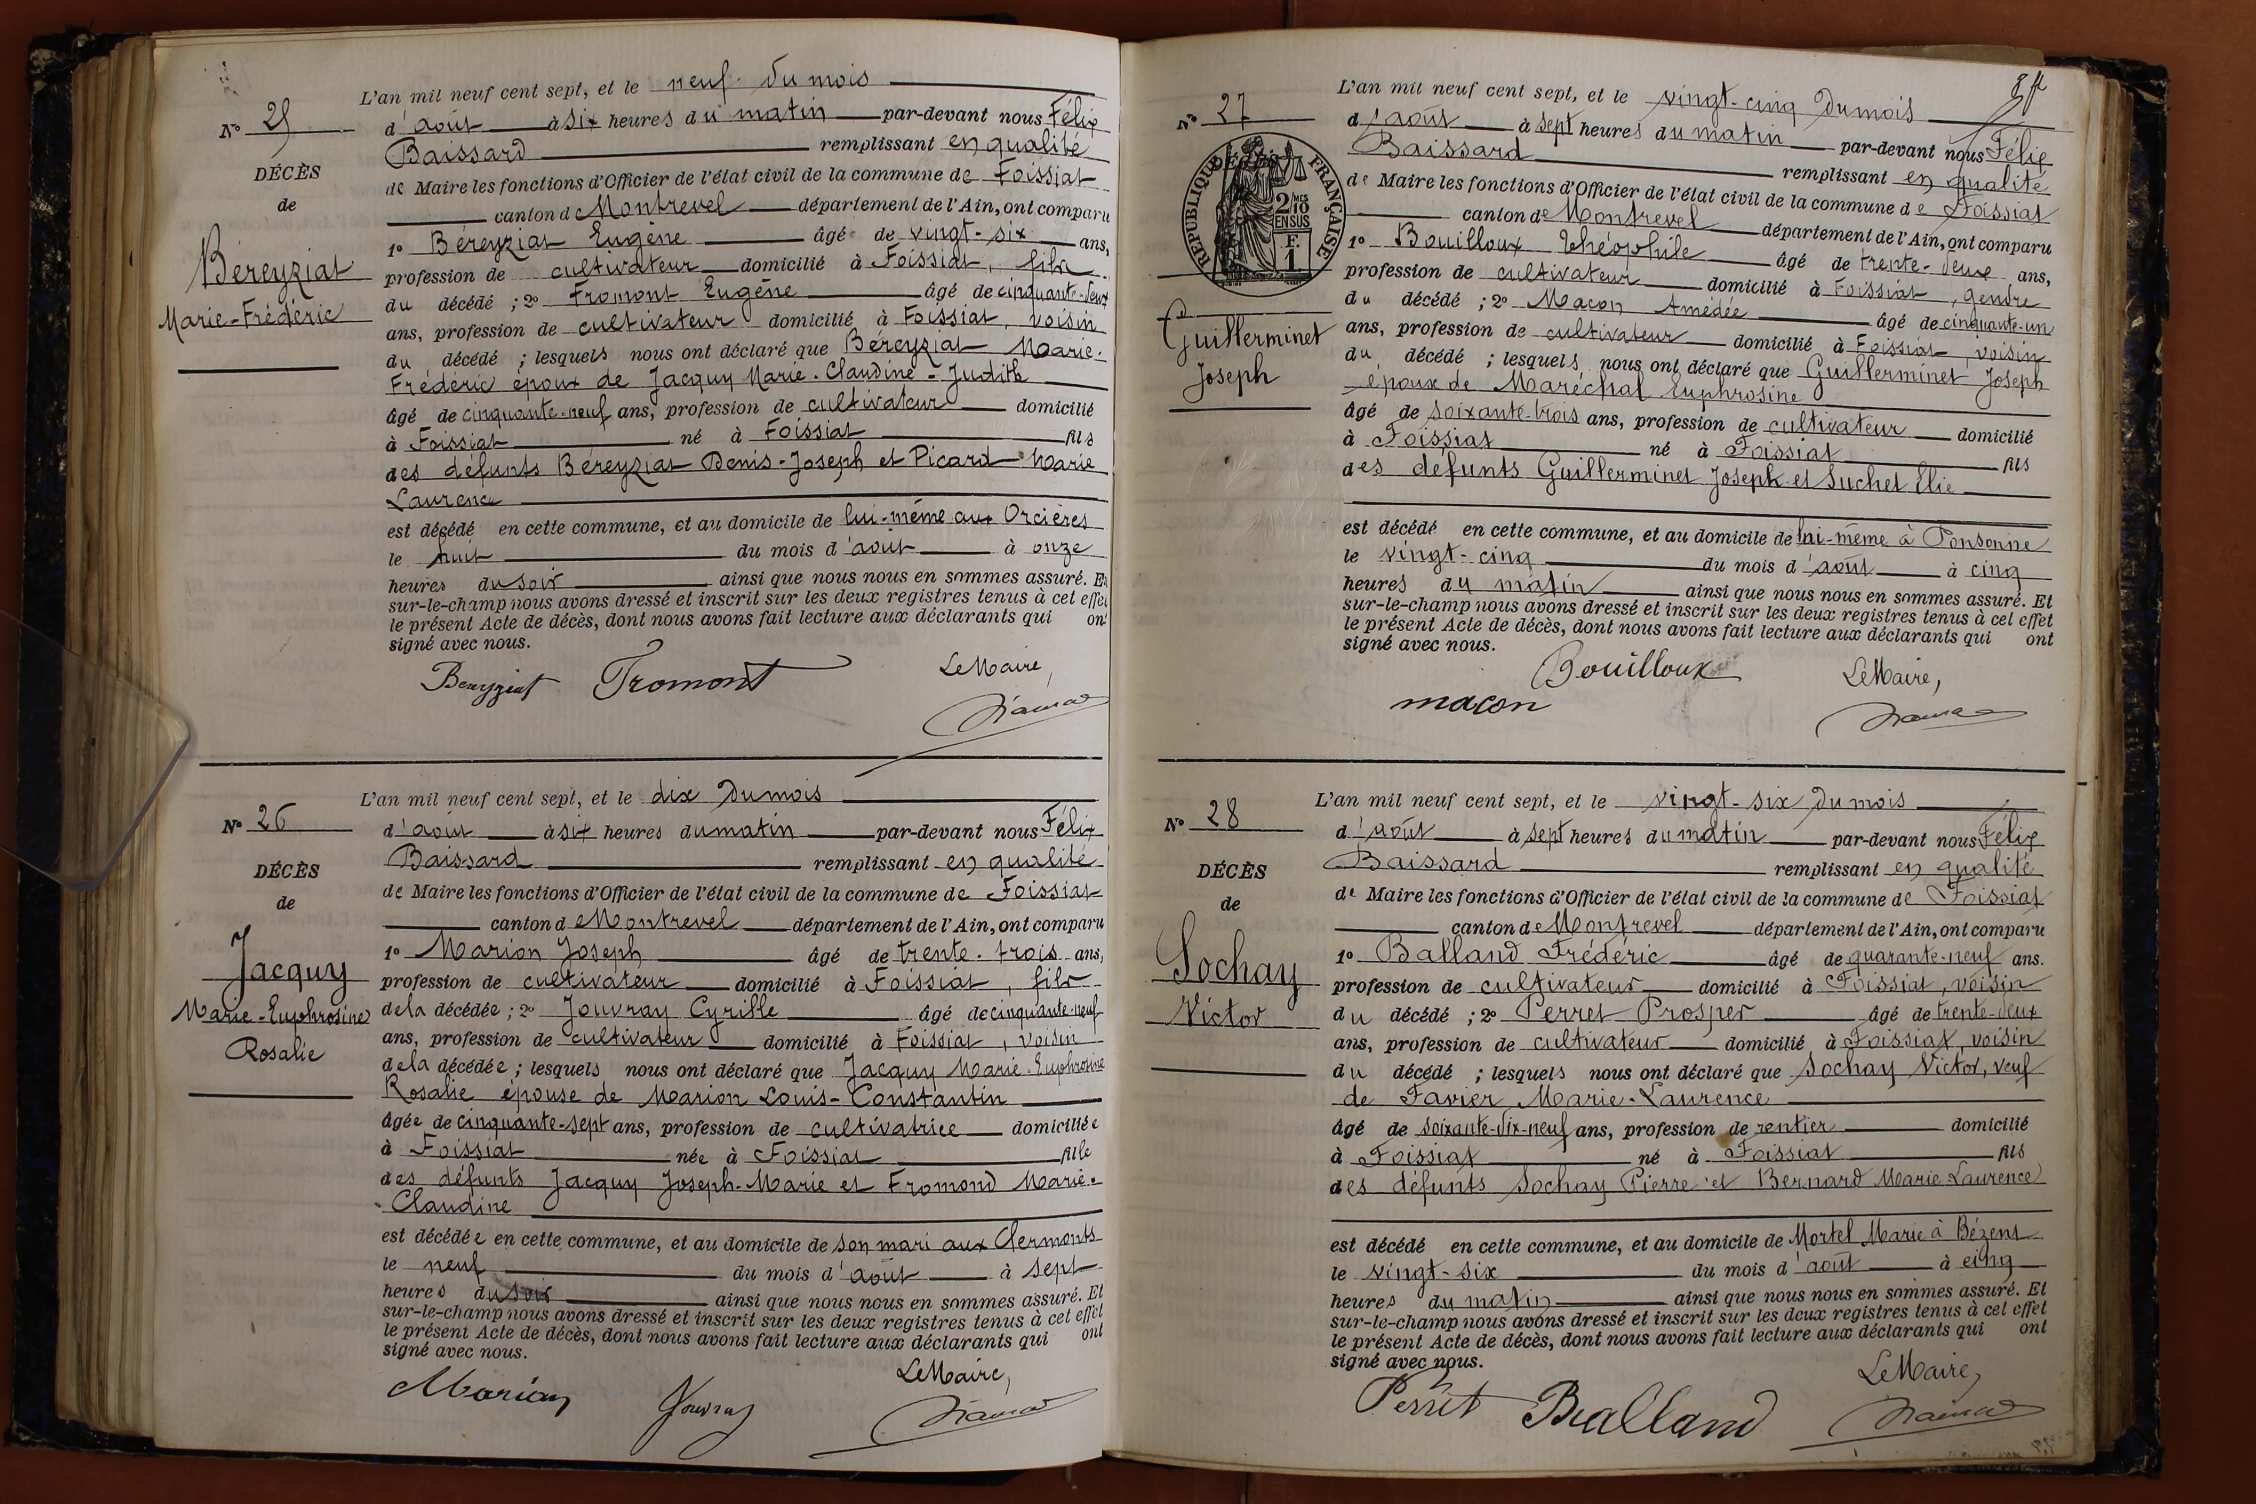 L'an mil neuf cent sept, et le neuf du mois
N° 25
d'août à six heures du matin par-devant nous Félix
Baissard remplissant en qualité
DÉCÈS
de Maire les fonctions d'Officier de l'état civil de la commune de Foissiat
de
canton de Montrevel département de l'Ain, ont comparu
1° Béreyziat Eugène âgé de vingt-six ans,
Béreyziat
profession de cultivateur domicilié à Foissiat, fils
Marie-Frédéric
du décédé ; 2° Fromont Eugène âgé de cinquante-deux
ans, profession de cultivateur domicilié à Foissiat, voisin
du décédé ; lesquels nous ont déclaré que Béreyziat Marie-
Frédéric époux de Jacquy Marie-Claudine-Judith
âgé de cinquante-neuf ans, profession de cultivateur domicilié
à Foissiat né à Foissiat fils
des défunts Béreyziat Denis-Joseph et Picard Marie
Laurence
est décédé en cette commune, et au domicile de lui-même aux Orcières
le huit du mois d'août à onze
heures du soir ainsi que nous nous en sommes assuré. Et
sur-le-champ nous avons dressé et inscrit sur les deux registres tenus à cet effet
le présent Acte de décès, dont nous avons fait lecture aux déclarants qui ont
signé avec nous.
Bereyziat Fromont Le Maire,
L'an mil neuf cent sept, et le dix du mois
N° 26
d'août à six heures du matin par-devant nous Félix
Baissard remplissant en qualité
DÉCÈS
de Maire les fonctions d'Officier de l'état civil de la commune de Foissiat
de
canton de Montrevel département de l'Ain, ont comparu
1° Marion Joseph âgé de trente-trois ans,
Jacquy
profession de cultivateur domicilié à Foissiat, fils
Marie-Euphrosine
de la décédée ; 2° Jouvray Cyrille âgé de cinquante-neuf
ans, profession de cultivateur domicilié à Foissiat, voisin
Rosalie
de la décédée ; lesquels nous ont déclaré que Jacquy Marie-Euphrosine
Rosalie épouse de Marion Louis-Constantin
âgée de cinquante-sept ans, profession de cultivatrice domiciliée
à Foissiat née à Foissiat fille
des défunts Jacquy Joseph-Marie et Fromond Marie-
Claudine
est décédée en cette commune, et au domicile de son mari aux Clermonts
le neuf du mois d'août à sept
heures du soir ainsi que nous nous en sommes assuré. Et
sur-le-champ nous avons dressé et inscrit sur les deux registres tenus à cet effet
le présent Acte de décès, dont nous avons fait lecture aux déclarants qui ont
signé avec nous.
Marion Jouvray Le Maire,
L'an mil neuf cent sept, et le vingt-cinq du mois
N° 27
d'août à sept heures du matin par-devant nous Félix
Baissard remplissant en qualité
DÉCÈS
RÉPUBLIQUE FRANÇAISE
2/10 MES
EN SUS
F.
1
de Maire les fonctions d'Officier de l'état civil de la commune de Foissiat
canton de Montrevel département de l'Ain, ont comparu
1° Bouilloux Théophile âgé de trente-deux ans,
profession de cultivateur domicilié à Foissiat, gendre
du décédé ; 2° Macon Amédée âgé de cinquante-un
Guillerminet
ans, profession de cultivateur domicilié à Foissiat, voisin
Joseph
du décédé ; lesquels nous ont déclaré que Guillerminet Joseph
époux de Maréchal Euphrosine
âgé de soixante-trois ans, profession de cultivateur domicilié
à Foissiat né à Foissiat fils
des défunts Guillerminet Joseph et Suchet Elie
est décédé en cette commune, et au domicile de lui-même à Ponsonne
le vingt-cinq du mois d'août à cinq
heures du matin ainsi que nous nous en sommes assuré. Et
sur-le-champ nous avons dressé et inscrit sur les deux registres tenus à cet effet
le présent Acte de décès, dont nous avons fait lecture aux déclarants qui ont
signé avec nous.
Bouilloux Le Maire,
macon
L'an mil neuf cent sept, et le vingt-six du mois
N° 28
d'août à sept heures du matin par-devant nous Félix
Baissard remplissant en qualité
DÉCÈS
de Maire les fonctions d'Officier de l'état civil de la commune de Foissiat
de
canton de Montrevel département de l'Ain, ont comparu
1° Balland Frédéric âgé de quarante-neuf ans.
Sochay
profession de cultivateur domicilié à Foissiat, voisin
Victor
du décédé ; 2° Perret Prosper âgé de trente-deux
ans, profession de cultivateur domicilié à Foissiat, voisin
du décédé ; lesquels nous ont déclaré que Sochay Victor, veuf
de Favier Marie-Laurence
âgé de soixante-dix-neuf ans, profession de rentier domicilié
à Foissiat né à Foissiat fils
des défunts Sochay Pierre et Bernard Marie Laurence
est décédé en cette commune, et au domicile de Mortel Marie à Bézens
le vingt-six du mois d'août à cinq
heures du matin ainsi que nous nous en sommes assuré. Et
sur-le-champ nous avons dressé et inscrit sur les deux registres tenus à cet effet
le présent Acte de décès, dont nous avons fait lecture aux déclarants qui ont
signé avec nous.
Perret Balland Le Maire,